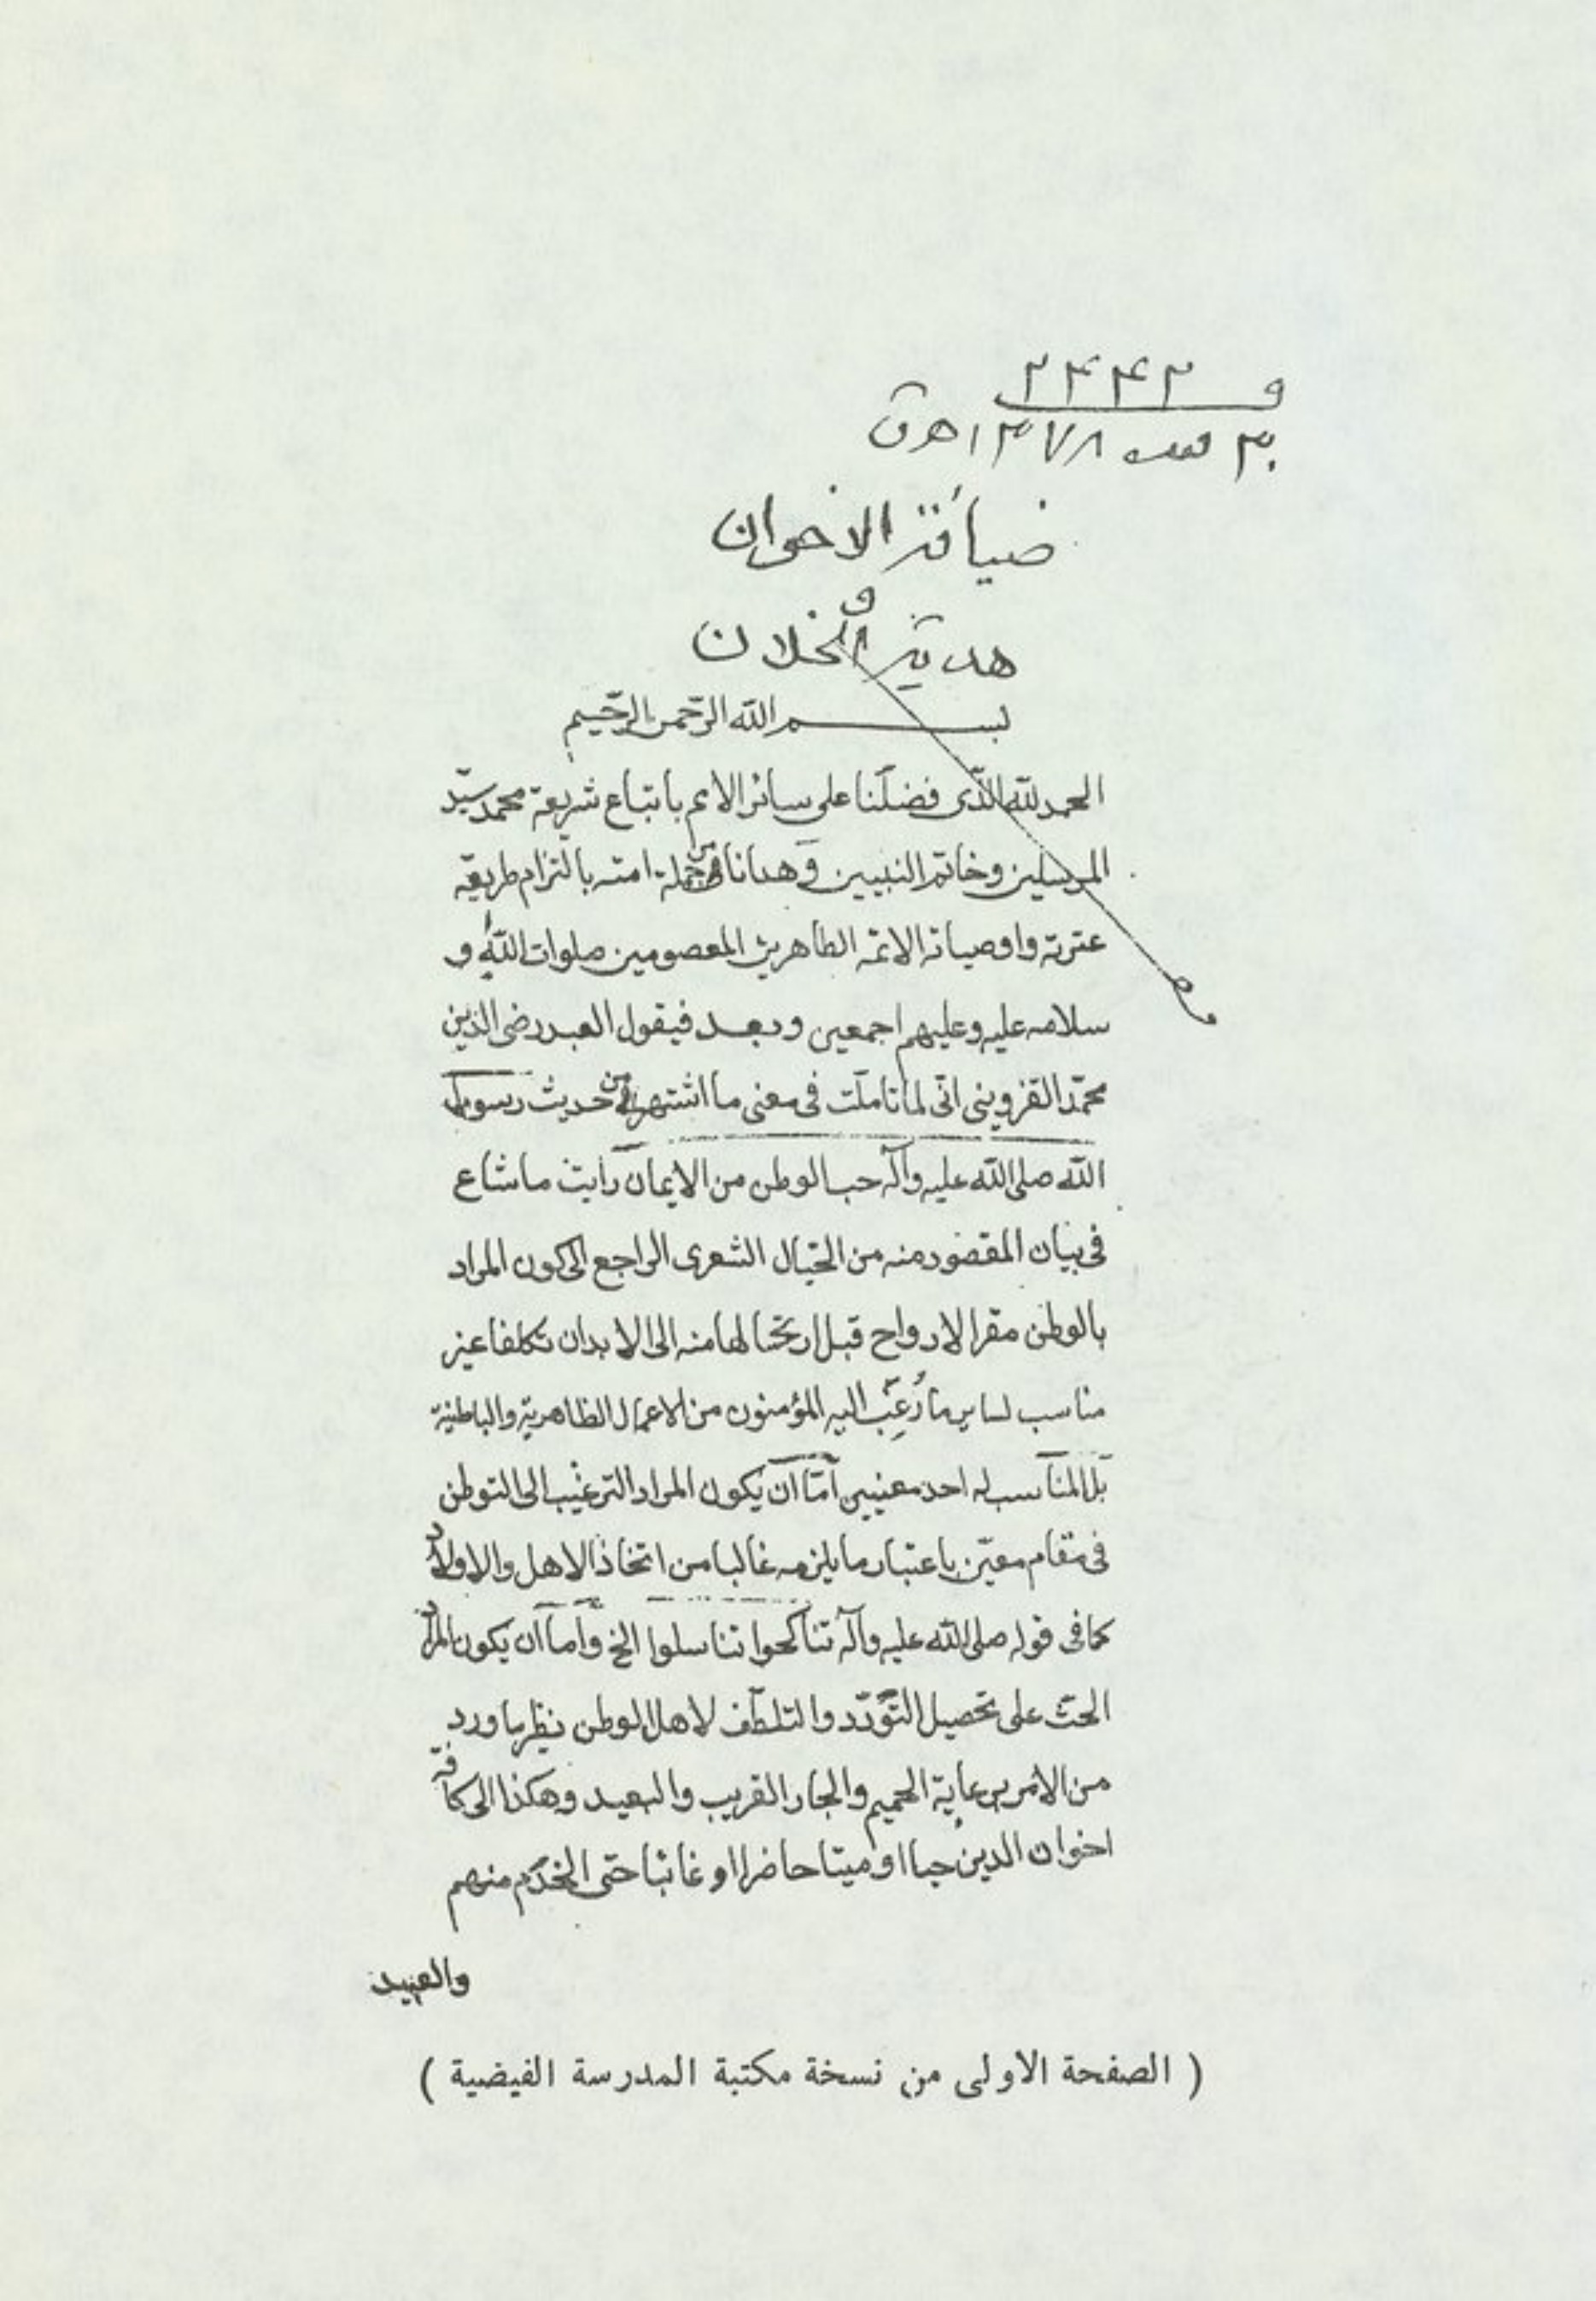 و ۲۴۴۲
۳۰ ۱۳۷۸ هـ ق
ضيافة الاخوان
و
هدية الخلان
بسم الله الرّحمن الرّحيم
الحمد لله الّذى فضلّنا على سائر الامم باتباع شريعة محمد سيّد
المرسلين وخاتم النبيين وهدانا من جملة امته بالتزام طريقة
عترته واوصيائه الائمه الطاهرين المعصومين صلوات الله و
سلامه عليه وعليهم اجمعين وبعد فيقول العبد رضى الدين
محمّد القزوينى انى لما تاملت فى معنى ما اشتهر من حديث رسول
الله صلى الله عليه وآله حب الوطن من الايمان رايت ما شاع
فى بيان المقصود منه من الخيال الشعرى الراجع الى كون المراد
بالوطن مقر الارواح قبل ارتحالها منه الى الابدان تكلفا غير
مناسب لساير ما رُغِّب اليه المؤمنون من الاعمال الظاهرية والباطنية
بل المناسب له احد معنيين امّا ان يكون المراد الترغيب الى التوطن
فى مقام معيّن باعتبار ما يلزمه غالبا من اتخاذ الاهل والاولاد
كما فى قوله صلى الله عليه وآله تناكحوا تناسلوا الخ وامّا ان يكون المراد
الحث على تحصيل التّودّد والتلطّف لاهل الوطن نظير ما ورد
من الامر برعاية الحميم والجار القريب والبعيد وهكذا الى كافة
اخوان الدين حيا او ميتا حاضرا او غائبا حتى الخدم منهم
والعبيد
( الصفحة الاولى من نسخة مكتبة المدرسة الفيضية )